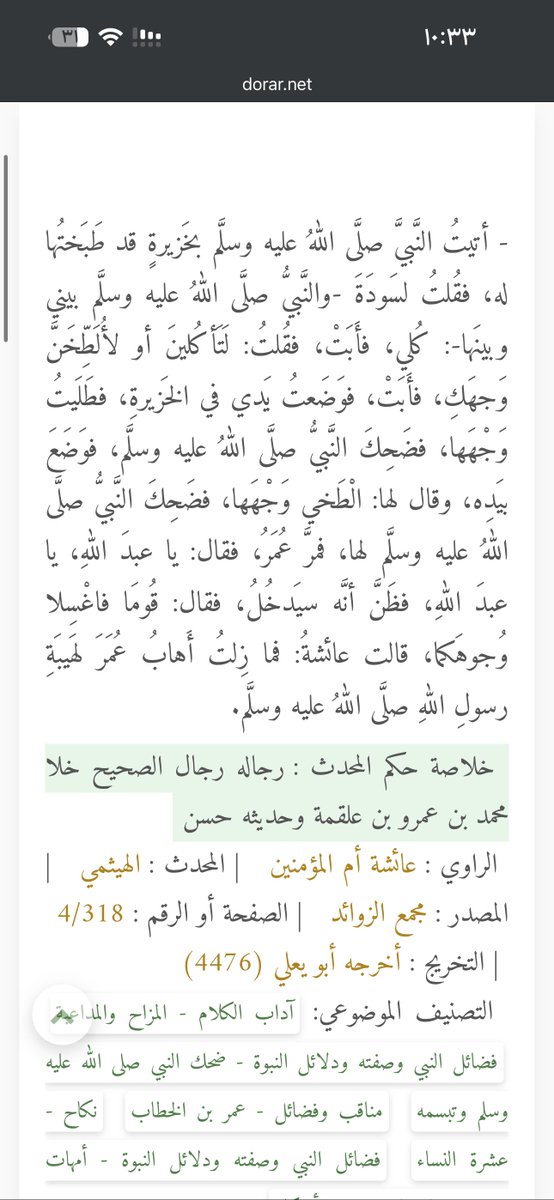 ٣١
١٠:٣٣
dorar.net
- أتيتُ النَّبيَّ صلَّى اللهُ عليه وسلَّم بخَزيرةٍ قد طَبَختُها
له، فقُلتُ لسَودَةَ -والنَّبيُّ صلَّى اللهُ عليه وسلَّم بيني
وبينَها-: كُلي، فأَبَتْ، فقُلتُ: لَتَأكُلينَ أو لأُلَطِّخَنَّ
وَجهَكِ، فأَبَتْ، فوَضَعتُ يَدي في الخَزيرةِ، فطَلَيتُ
وَجْهَها، فضَحِكَ النَّبيُّ صلَّى اللهُ عليه وسلَّم، فوَضَعَ
بيَدِه، وقال لها: الْطَخي وَجْهَها، فضَحِكَ النَّبيُّ صلَّى
اللهُ عليه وسلَّم لها، فمرَّ عُمَرُ، فقال: يا عبدَ اللهِ، يا
عبدَ اللهِ، فظَنَّ أنَّه سيَدخُلُ، فقال: قُومَا فاغْسِلا
وُجوهَكما، قالت عائشةُ: فما زِلتُ أَهابُ عُمَرَ لهَيبَةِ
رسولِ اللهِ صلَّى اللهُ عليه وسلَّم.
خلاصة حكم المحدث : رجاله رجال الصحيح خلا
محمد بن عمرو بن علقمة وحديثه حسن
الراوي : عائشة أم المؤمنين | المحدث : الهيثمي |
المصدر : مجمع الزوائد | الصفحة أو الرقم : 4/318
| التخريج : أخرجه أبو يعلي (4476)
التصنيف الموضوعي: آداب الكلام - المزاح والمداعبة
فضائل النبي وصفته ودلائل النبوة - ضحك النبي صلى الله عليه
وسلم وتبسمه مناقب وفضائل - عمر بن الخطاب نكاح -
عشرة النساء فضائل النبي وصفته ودلائل النبوة - أمهات